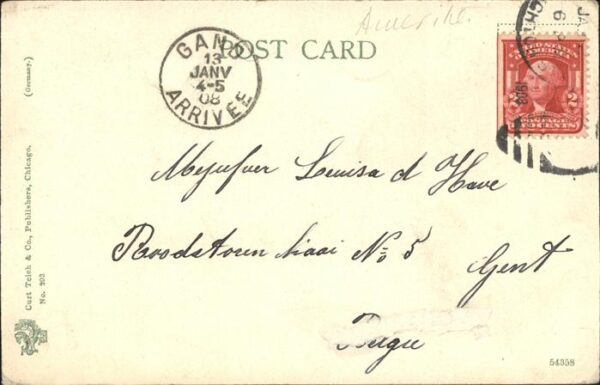 Amerika.
POST CARD
GAND
13
JANV
4-5
08
ARRIVEE
JA
6
1908
UNITED STATES
OF AMERICA
2 2
POSTAGE
TWO CENTS
Mejufver Louisa d Have
No 5
Gent
(Germany.)
Curt Teich & Co., Publishers, Chicago.
No. 303
54358